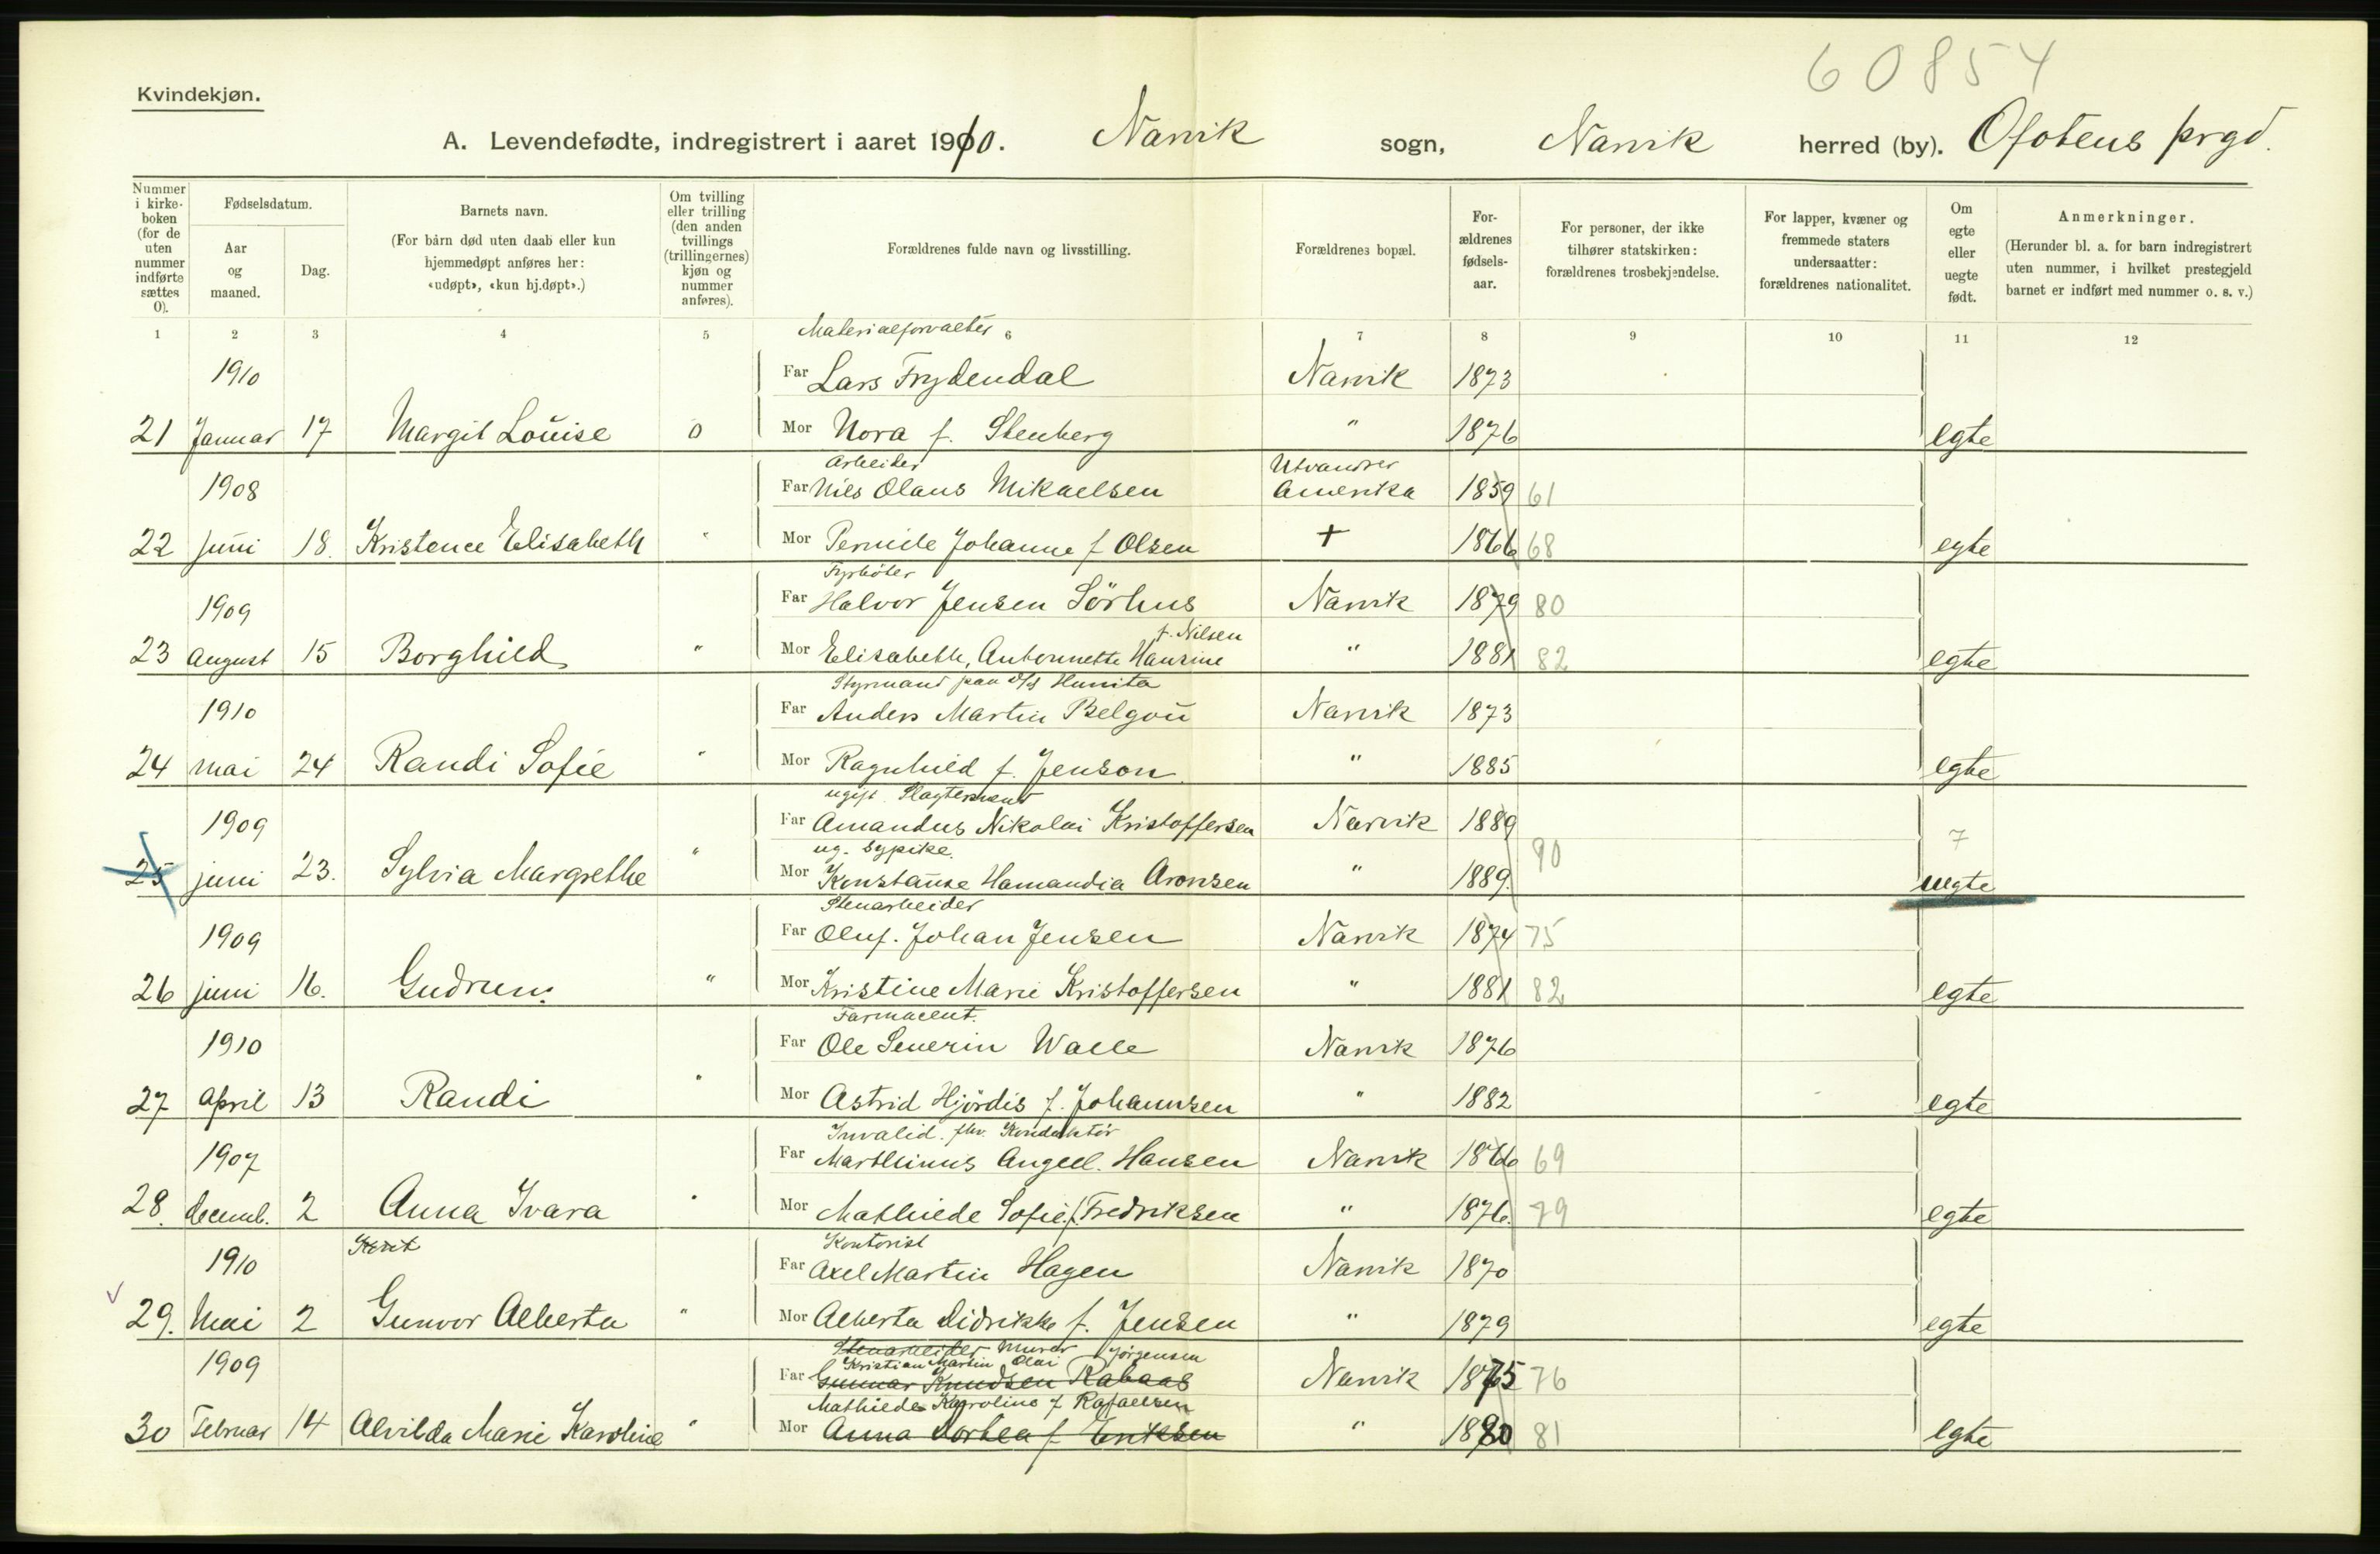 60854
Kvindekjøn.
A. Levendefødte, indregistrert i aaret 1910. Narvik sogn, Narvik herred (by). Ofotens prgd.
Nummer i kirkeboken (for de uten nummer indførte sættes 0).
Fødselsdatum.
Aar og maaned.
Dag.
Barnets navn.
(For barn død uten daab eller kun hjemmedøpt anføres her: «udøpt», «kun hj.døpt».)
Om tvilling eller trilling (den anden tvillings (trillingernes) kjøn og nummer anføres).
Forældrenes fulde navn og livsstilling.
Forældrenes bopæl.
For-ældrenes fødsels-aar.
For personer, der ikke tilhører statskirken: forældrenes trosbekjendelse.
For lapper, kvæner og fremmede staters undersaatter: forældrenes nationalitet.
Om egte eller uegte født.
Anmerkninger.
(Herunder bl. a. for barn indregistrert uten nummer, i hvilket prestegjeld barnet er indført med nummer o. s. v.)
1 2 3 4 5 6 7 8 9 10 11 12
Materialforvalter
1910 Far Lars Frydendal Narvik 1873
21 Januar 17 Margit Louise 0 Mor Nora f. Stenberg " 1876 egte
Arbeider Utvandrer
1908 Far Nils Olaus Mikaelsen Amerika 1859 61
22 juni 18. Kristence Elisabeth " Mor Pernile Johanne f Olsen + 1866 68 egte
Fyrbøter
1909 Far Halvor Jensen Sörhus Narvik 1879 80
f. Nilsen
23 August 15 Borghild " Mor Elisabeth, Antonnette Hansine " 1881 82 egte
Styrmand paa D/S Hunita
1910 Far Anders Martin Belgou Narvik 1873
24 mai 24 Randi Sofie " Mor Ragnhild f. Jenson " 1885 egte
ugift. Slagtersvend
1909 Far Amandus Nikolai Kristoffersen Narvik 1889 7
ug. sypike. 90
25 juni 23. Sylvia Margrethe " Mor Konstanse Hamandia Aronsen " 1889. uegte
Stenarbeider
1909 Far Oluf. Johan Jensen Narvik 1874 75
26 juni 16. Gudrun. " Mor Kristine Marie Kristoffersen " 1881 82 egte
Farmaceut.
1910 Far Ole Severin Walle Narvik 1876
27 April 13 Randi " Mor Astrid Hjördis f. Johannsen " 1882 egte
Invalid. fhv. Konduktör
1907 Far Marthinus Angell. Hansen Narvik 1866 69
28. decemb. 2 Anna Ivara " Mor Mathilde Sofie f. Fredriksen " 1876. 79 egte
Kontorist
1910 Far Axel Martin Hagen Narvik 1870
29. Mai 2 Gunvor Alberta " Mor Alberta Didrikke f. Jensen " 1879 egte
Stenarbeider Murer Jörgensen
Kristian Martin Olai
1909 Far Gunnar Knudsen Rabaas Narvik 1875 76
Mathilde Karoline f Rafaelsen
30 Februar 14 Alvilda Marie Karoline " Mor Anna Dorthea f Eriksen " 1880 81 egte